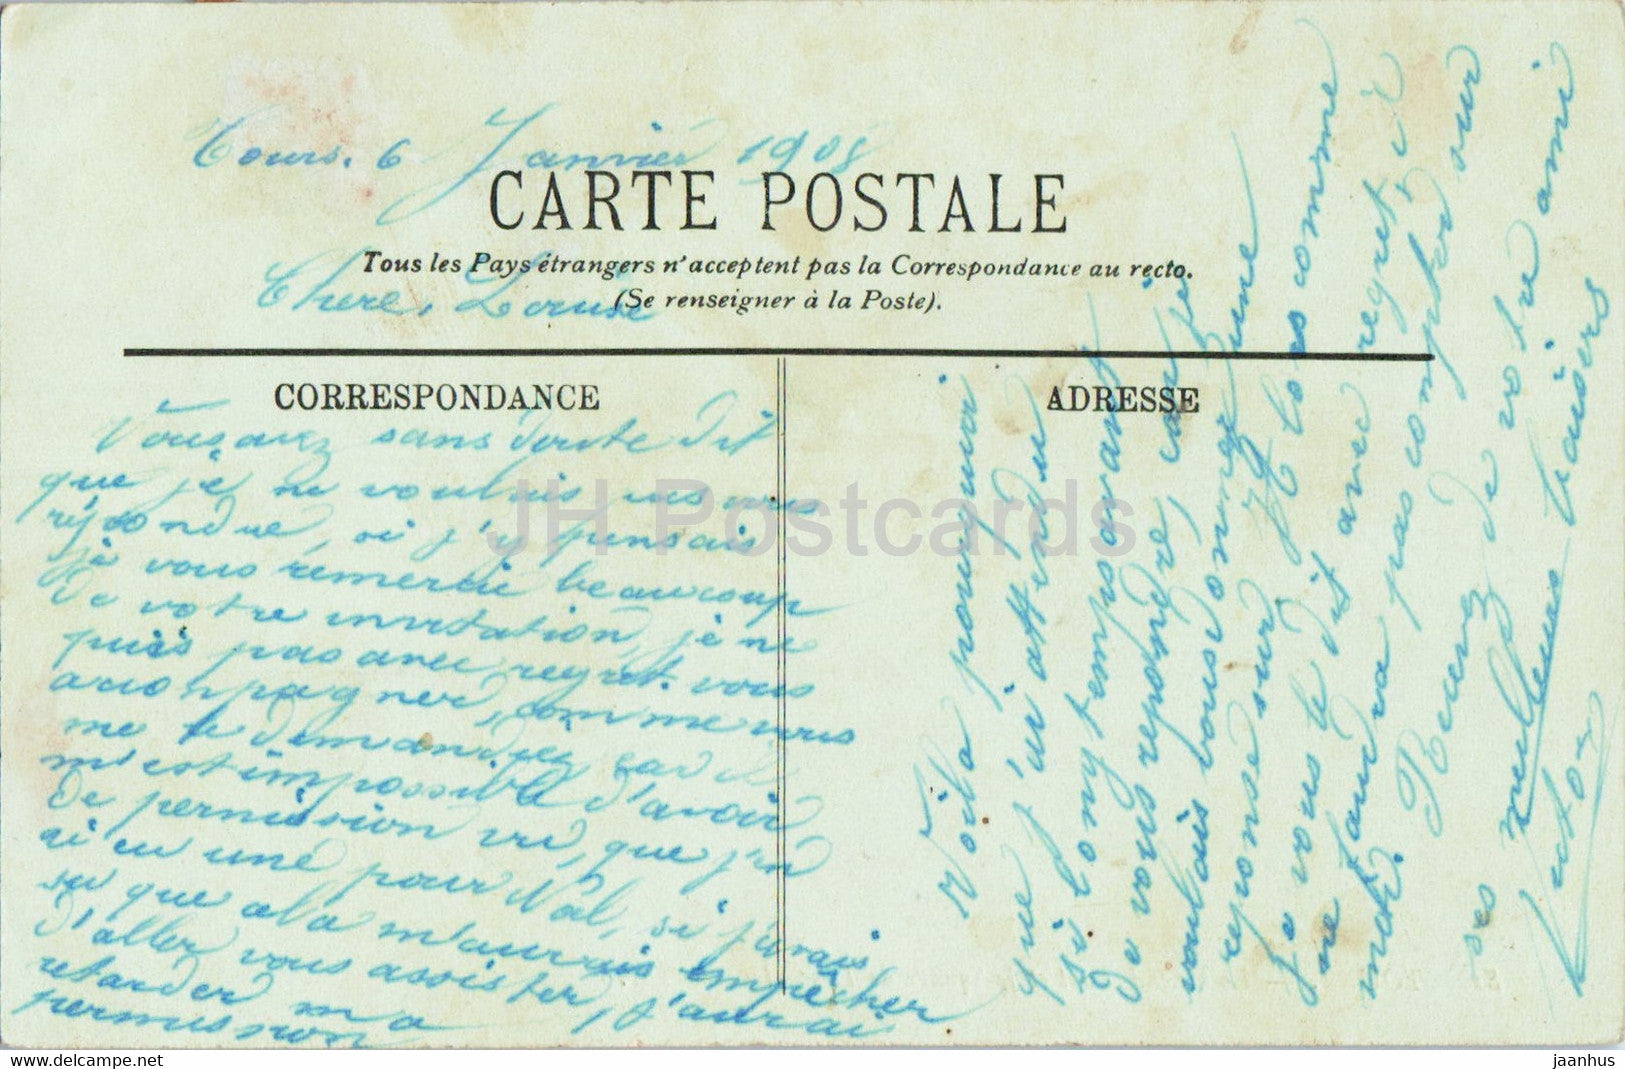 Tours. 6 Janvier 1908
CARTE POSTALE
Tous les Pays étrangers n'acceptent pas la Correspondance au recto.
(Se renseigner à la Poste).
Chere, Louise
CORRESPONDANCE
ADRESSE
Vous avez sans doute dit
que je ne voulais vous
répondre, si j'y pensais
je vous remercie beaucoup
de votre invitation, je ne
puis pas avec regret. vous
accompagner, comme vous
me le demandiez car il
m'est impossible d'avoir
de permission vu, que j'en
ai eu une pour Nöal, si j'avais
su que cela m'aurais empécher
d'aller vous assister, j'aurai
retarder ma
permission
Voila pourquoi
que j'ai attendu
si longtemps avant
de vous repondre, car je
voulais vous donner une
reponse sur
je vous le dit avec regret, il
ne faudra pas compter sur
moi.
Recevez de votre ami
ses meilleurs baisers
Victor
JH Postcards
https://delcampe.net
jaanhus